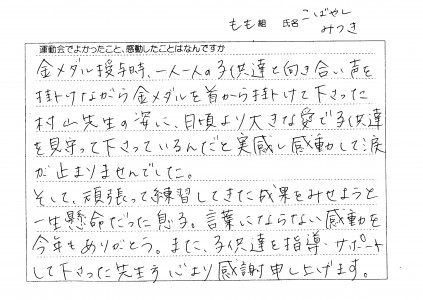 もも組 氏名 こばやし
みつき
運動会でよかったこと、感動したことはなんですか
金メダル授与時、一人一人の子供達と向き合い声を
掛けながら金メダルを首から掛けて下さった
村山先生の姿に、日頃より大きな愛で子供達
を見守って下さっているんだと実感し感動して涙
が止まりませんでした。
そして、頑張って練習してきた成果をみせようと
一生懸命だった息子。言葉にならない感動を
今年もありがとう。また、子供達を指導・サポート
して下さった先生方 心より感謝申し上げます。